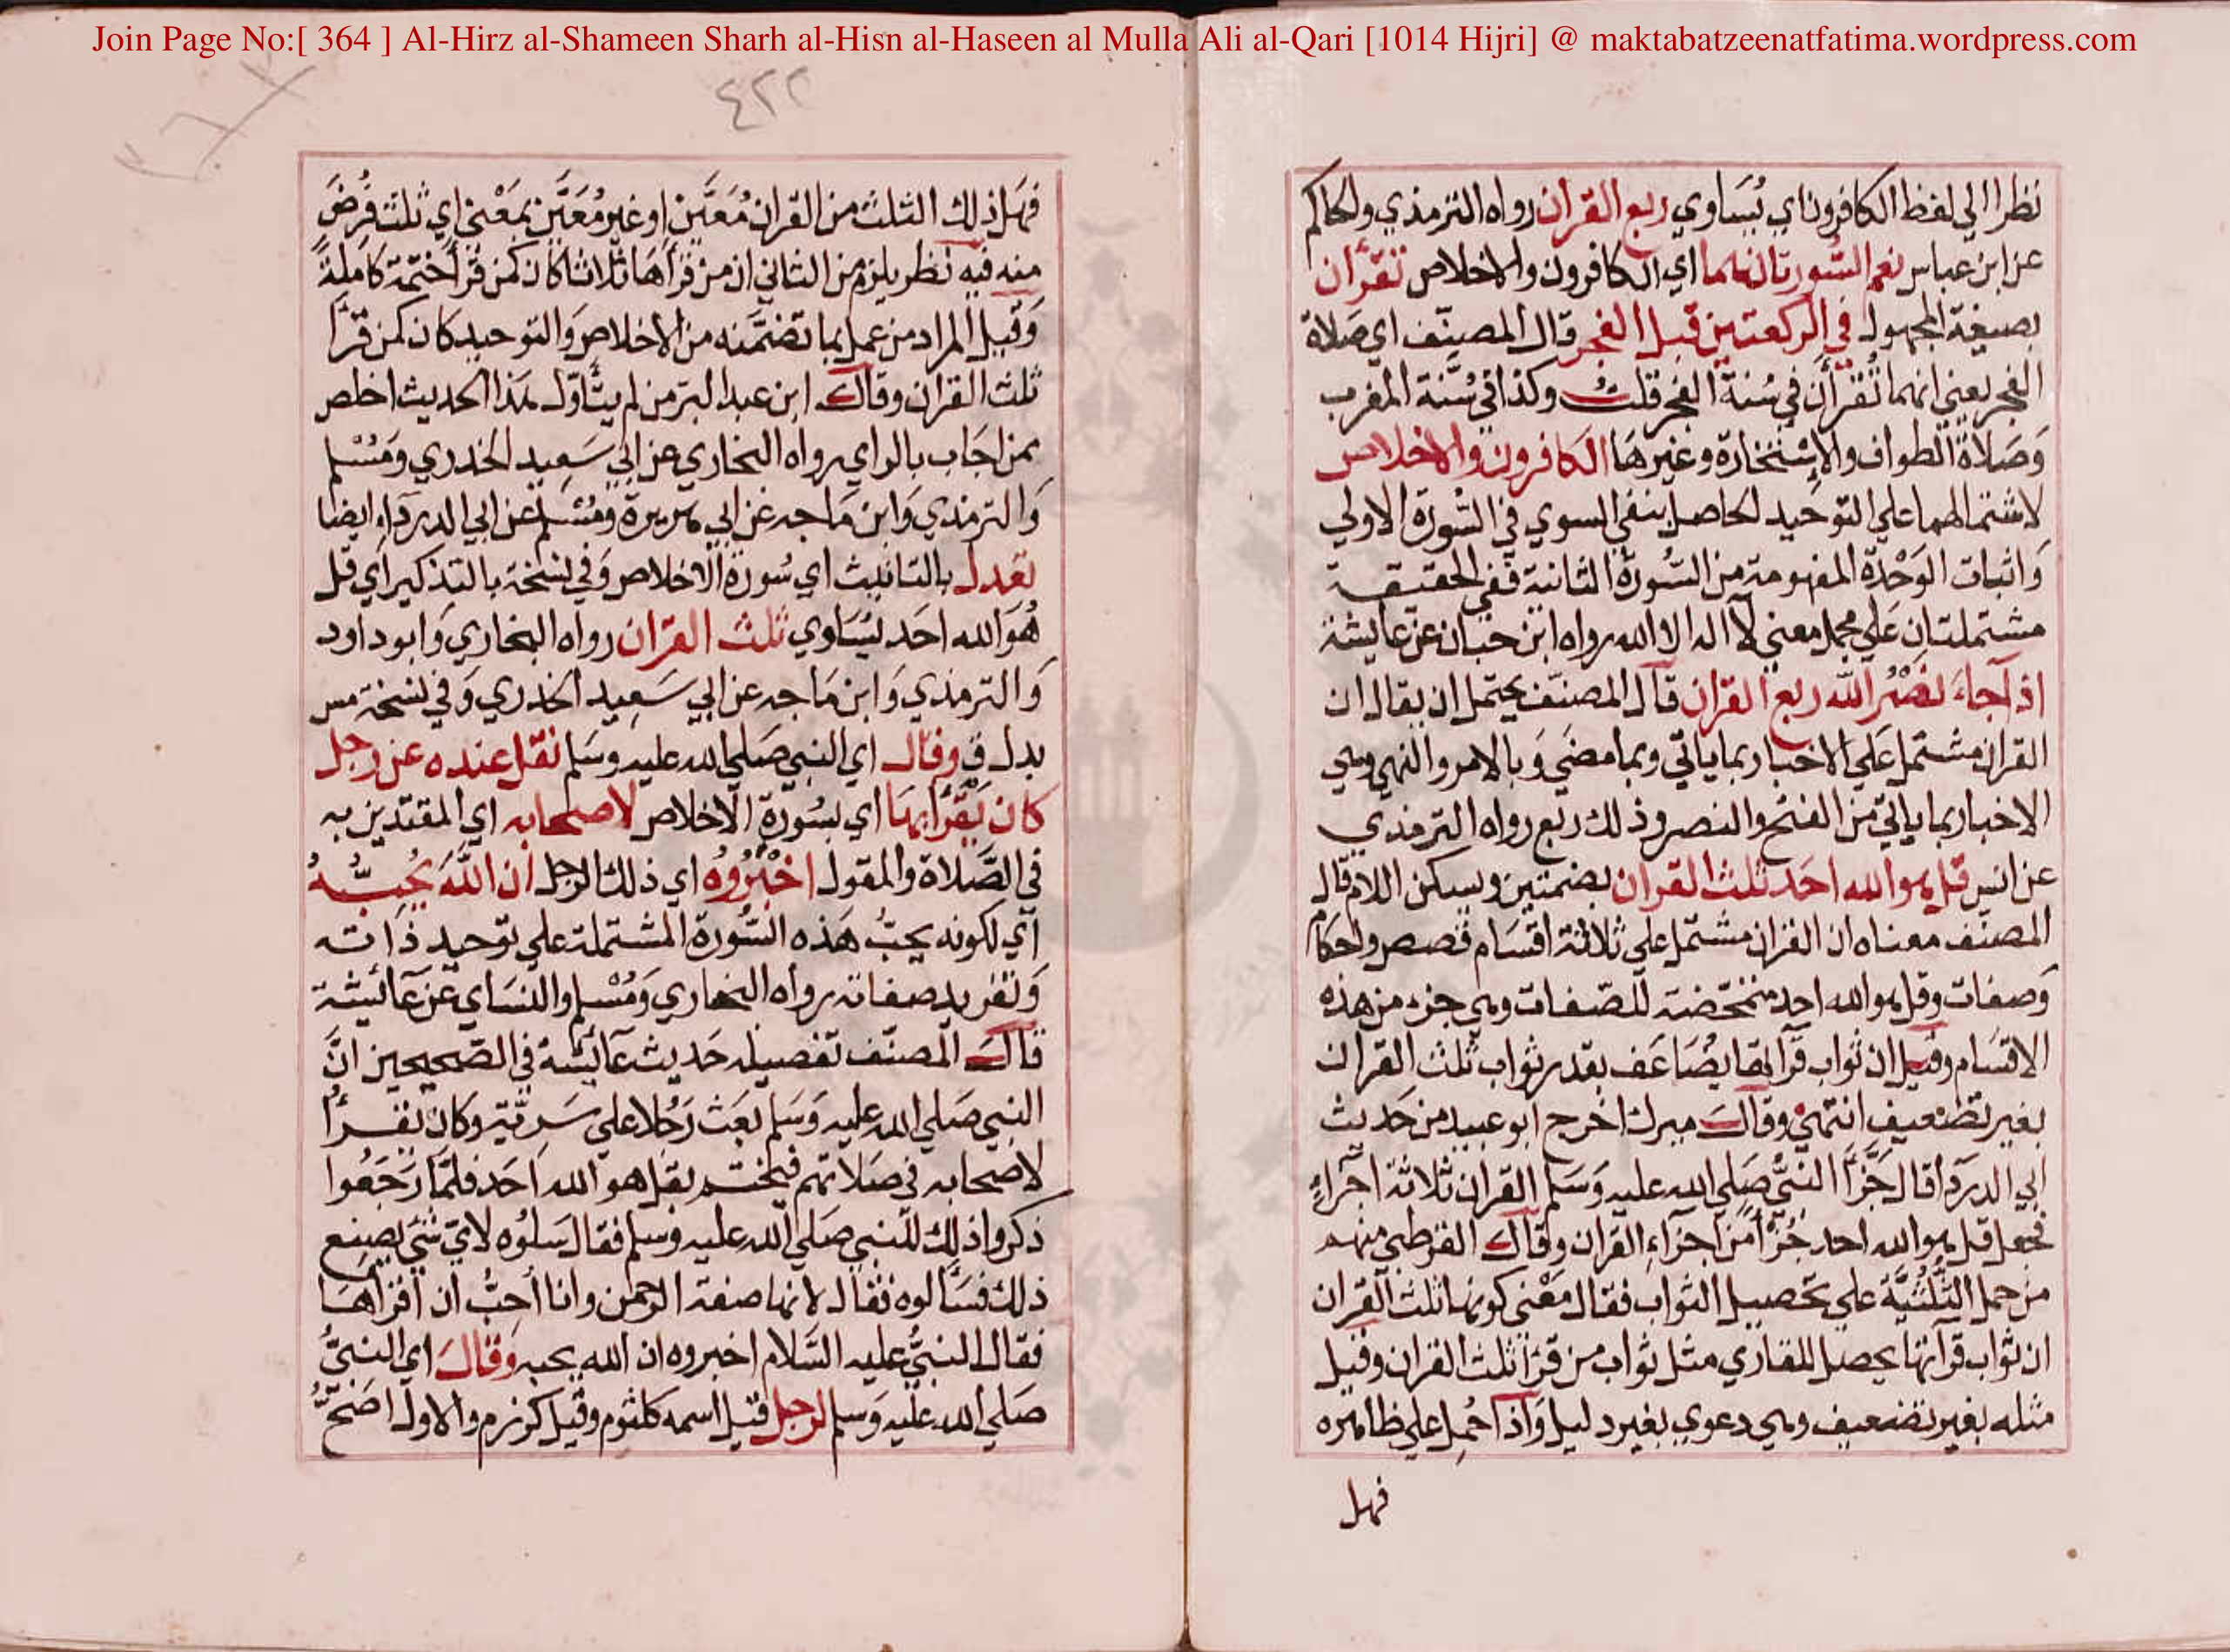 Join Page No:[ 364 ] Al-Hirz al-Shameen Sharh al-Hisn al-Haseen al Mulla Ali al-Qari [1014 Hijri] @ maktabatzeenatfatima.wordpress.com
نظرا الي لفظ الكافرون اي يُسَاوي ربع القران رواه الترمذي والحاكم
عن ابن عباس نعم السّورتان هما اي الكافرون والاخلاص تُقرَأن
بصيغة المجهول في الركعتين قبل الفجر قال المصنّف اي صَلاة
الفجر يعني انهما تُقرأن في سُنة الفجر قلتُ وكذا في سُنّة المغرب
وَصَلاة الطواف والاستخارة وغيرهَا الكافرون والاخلاص
لاشتمالهما علي التوحيد الحاصل بنفي السوي في السّورة الاولي
وَاثبات الوَحْدة المفهومة من السُّورة الثانية ففي الحقيقة
مشتملتان عَلي مجمل معني لآ اله الا الله رواه ابن حبّان عن عايشة
اذاجاء نصْرُ الله ربع القران قال المصنّف يحتمل ان يقال ان
القران مشتمل عَلي الاخبار بما ياتي وبما مضي وَبالامر والنهي وهي
الاخبار بما ياتي من الفتح والنصر وذلك ربع رواه الترمذي
عن انس قل هو الله احَد ثلث القران بضمتين ويسكن اللام قال
المصنّف معناه ان القران مشتمل علي ثلاثة اقسَام قصص واحكام
وَصفات وقل هو الله احد متمحّضة للصّفات وهي جزء من هذه
الاقسَام وقيل ان ثواب قرآتها يضَاعَف بقدر ثواب ثلث القران
بغير تضعيف انتهي وقال ميرك اخرج ابو عبيد من حَديث
ابي الدردَا قال جَزَّأ النبيّ صَلي الله عليه وَسَلم القران ثلاثة اجزاءٍ
فجعل قل هو الله احد جُزأ من اجزاء القران وقال القرطبي منهم
من حمل الثُّلثيَّة علي تحصيل الثواب فقال مَعْنى كونها ثلث القران
ان ثواب قرآتها يحصل للقاري مثل ثواب من قرَأ ثلث القران وقيل
مثله بغير تضعيف وهي دعوي بغير دليل وَاذا حُمِل علي ظاهره
فهل
٤٢٢
فهَل ذلك الثلث من القران مُعَيَّن او غير مُعَيَّن بمَعْني اي ثلث فُرضَ
منه فيه نظر يلزم من الثاني ان من قرأهَا ثلاثا كان كمن قرَأ ختمة كامِلَةً
وَقيل المراد من عمل بما تضمَّنه من الاخلاص وَالتوحيد كان كمن قرَأ
ثلث القران وقال ابن عبد البر من لم يتأوّل هَذا الحديث اخلص
ممن اجَاب بالراي رواه البخاري عن ابي سَعِيد الخدري وَمُسْلم
وَالترمذي وَابن مَاجه عن ابي هريرة ومُسْلم عن ابي الدردآء ايضا
تعدل بالتانيث اي سُورة الاخلاص وَفي نسخة بالتذكير اي قل
هُوَ الله احَد يُسَاوي ثلث القران رواه البخاري وَابو داود
وَالترمذي وَابن مَاجه عن ابي سَعِيد الخدري وَفي نسخة مس
بدل ق وقال اي النبي صَلي الله عليه وسَلم نقل عنده عن رجل
كان يَقرَأ بهَا اي بسُورَة الاخلاص لاصحابه اي المقتدين به
في الصَّلاة والمقول اخْبِرُوهُ اي ذلك الرجل ان اللهَ يُحِبُّهُ
اي لكونه يحبُّ هَذه السُّورة المشتملة علي توحيد ذاته
وَتفريد صفاته رواه البخاري وَمُسْلم والنسَاي عن عَائيشة
قال المصنّف تفصيله حَديث عآئشة في الصّحيحين انَّ
النبي صَلي الله عليه وَسَلم بَعَث رَجُلا علي سَرِيّة وَكان يَقرَأُ
لاصحابه في صَلاتهم فيختم بقل هو الله احَد فلمّا رَجَعُوا
ذكروا ذلك للنبي صَلي الله عليه وسلم فقال سَلُوه لايّ شَي يَصنع
ذلك فسَألوه فقال لانها صفة الرحمن وانا أحِبُّ ان اقرَاهَا
فقال النبيُّ عليه السَّلام اخبروه ان الله يحبه وَقالَ اي النبيُّ
صَلي الله عليه وَسلم لرجل قيل اسمه كلثوم وقيل كرزم والاول اصَحّ